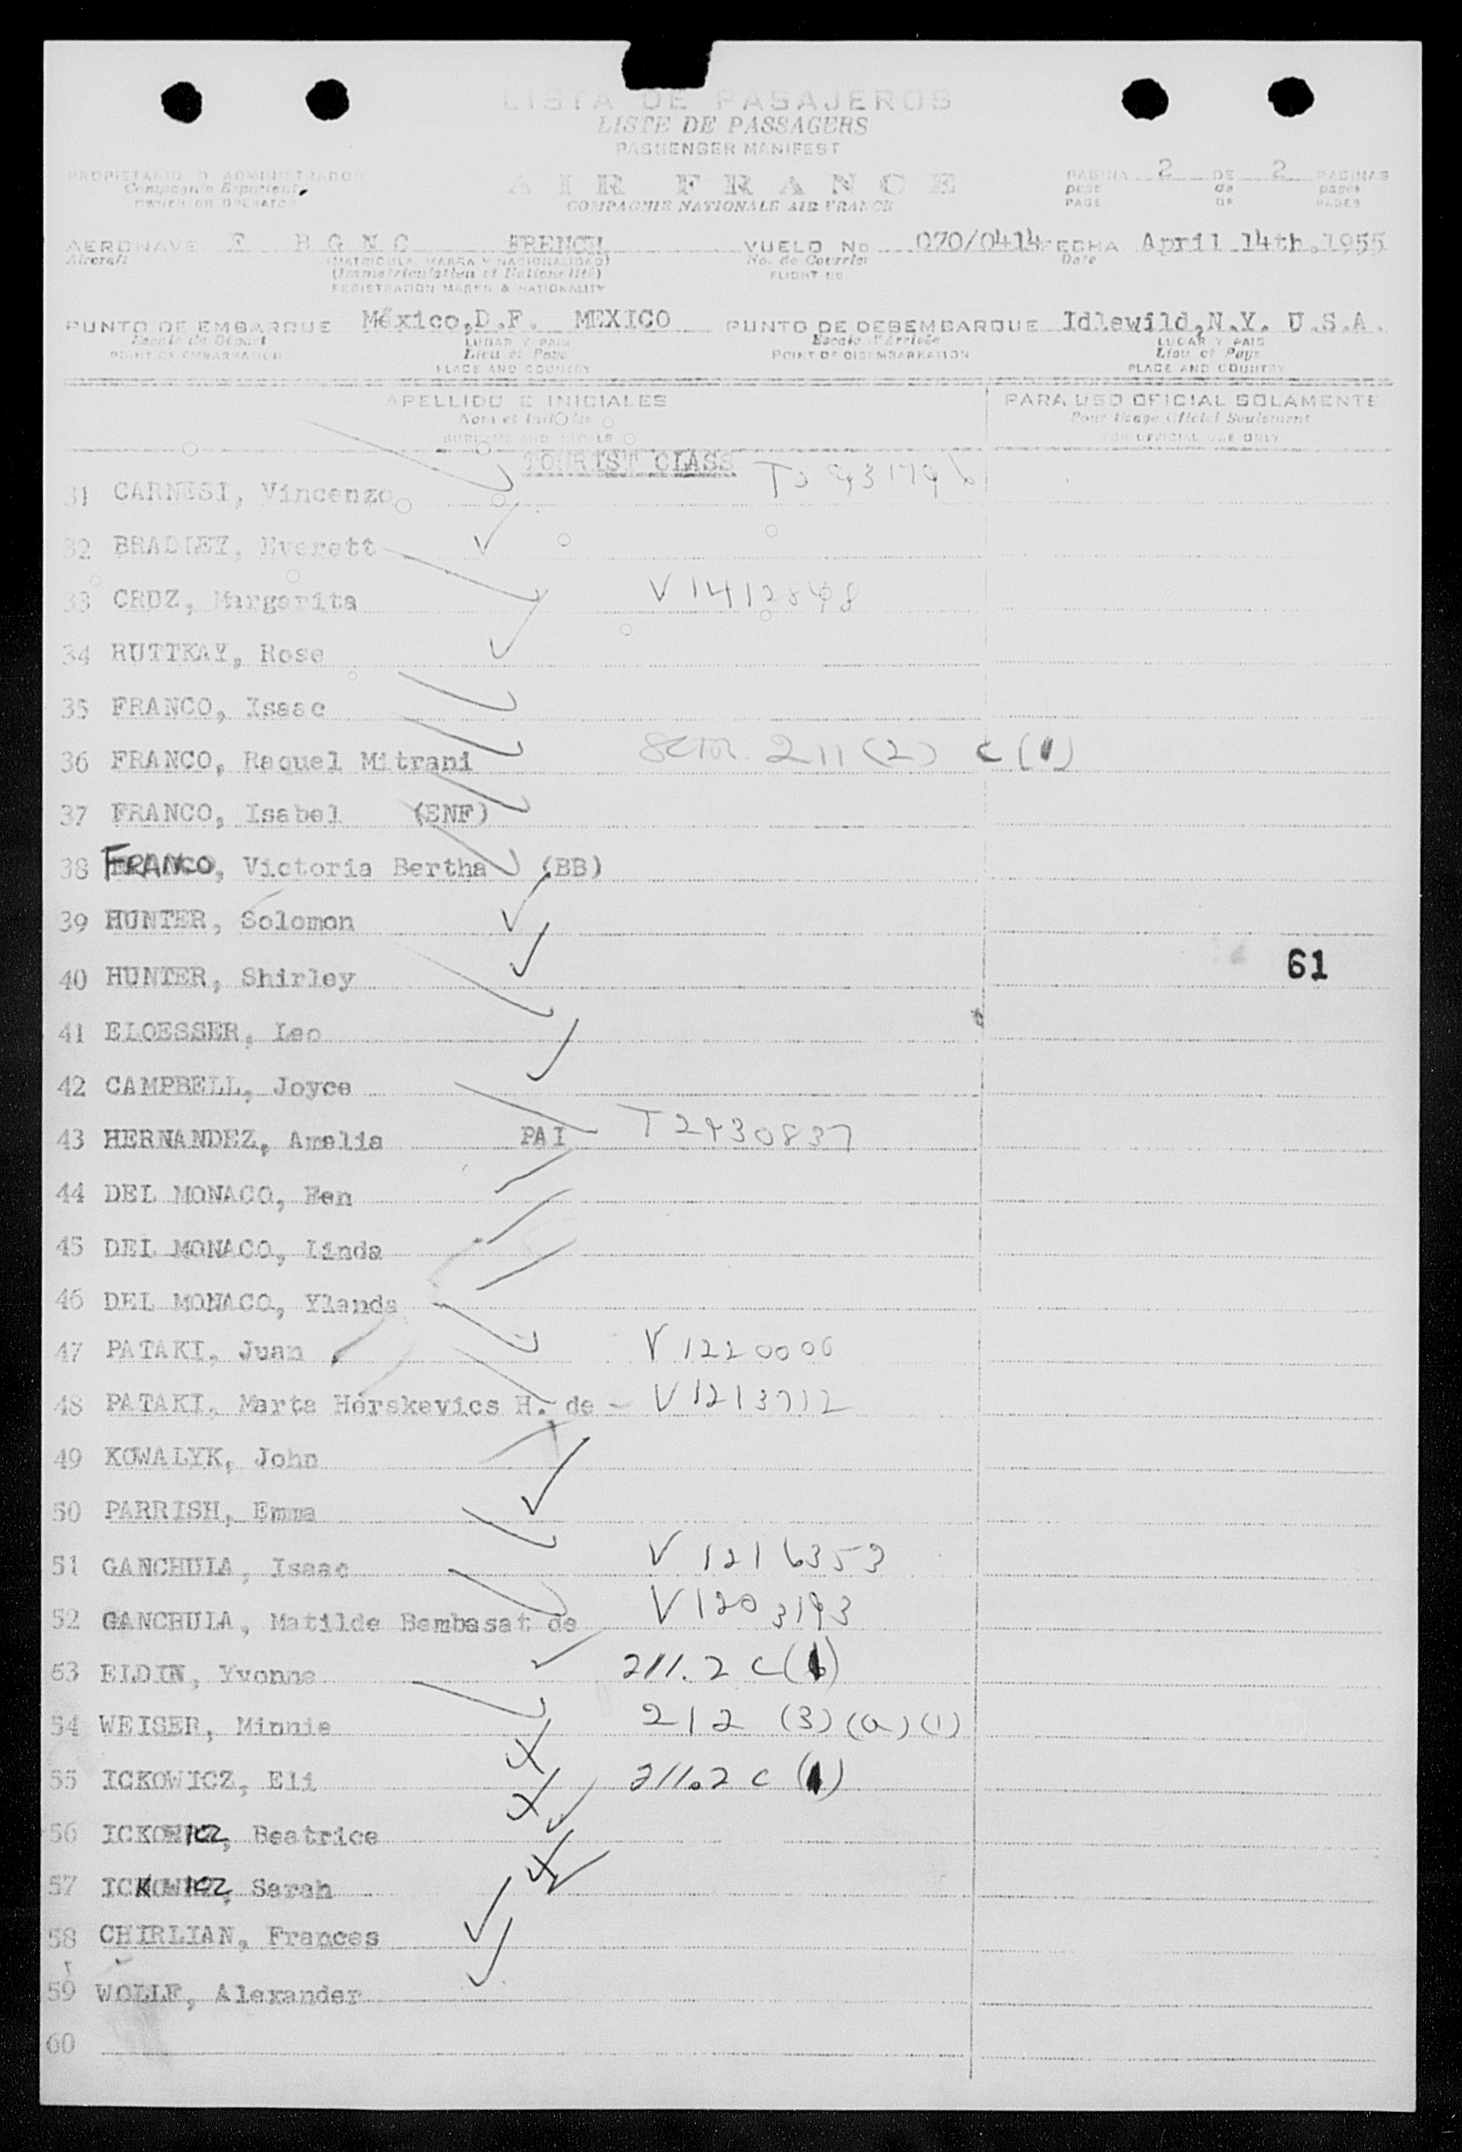 LISTA DE PASAJEROS
LISTE DE PASSAGERS
PASSENGER MANIFEST
PROPIETARIO O ADMINISTRADOR
OWNER OR OPERATOR
AIR FRANCE
COMPAGNIE NATIONALE AIR FRANCE
PAGINA 2 DE 2 PAGINAS
page de pages
PAGE OF PAGES
AERONAVE F BGNC FRENCH VUELO No 070/0414 FECHA April 14th.1955
Aircraft (MATRICULA, MARCA Y NACIONALIDAD) No. de Courrier Date
(Immatriculation et Nationalité) FLIGHT No
REGISTRATION MARKS & NATIONALITY
PUNTO DE EMBARQUE México,D.F. MEXICO PUNTO DE DESEMBARQUE Idlewild,N.Y. U.S.A.
Escale de Départ LUGAR Y PAIS Escale d'Arrivée LUGAR Y PAIS
POINT OF EMBARKATION Lieu et Pays POINT OF DISEMBARKATION Lieu et Pays
PLACE AND COUNTRY PLACE AND COUNTRY
APELLIDO E INICIALES PARA USO OFICIAL SOLAMENTE
Noms et Initiales Pour Usage Officiel Seulement
FOR OFFICIAL USE ONLY
TOURIST CLASS
31 CARNESI, Vincenzo
32 BRADLEY, Everett
33 CRUZ, Margarita V1412848
34 RUTTKAY, Rose
35 FRANCO, Isaac
36 FRANCO, Raquel Mitrani 211 (2) C (1)
37 FRANCO, Isabel (ENF)
38 FRANCO, Victoria Bertha (BB)
39 HUNTER, Solomon
40 HUNTER, Shirley 61
41 ELOESSER, Leo
42 CAMPBELL, Joyce
43 HERNANDEZ, Amelia PAI T2930837
44 DEL MONACO, Ben
45 DEL MONACO, Linda
46 DEL MONACO, Ylanda
47 PATAKI, Juan V 1220006
48 PATAKI, Marta Horskevics H. de V1213712
49 KOWALYK, John
50 PARRISH, Emma
51 GANCHULA, Isaac V 1216353
52 GANCHULA, Matilde Bembasat de V1203193
53 ELDIN, Yvonne 211.2 C (1)
54 WEISER, Minnie 212 (3) (a) (1)
55 ICKOWICZ, Eli 211.2 C (1)
56 ICKOWICZ, Beatrice
57 ICKOWICZ, Sarah
58 CHIRLIAN, Frances
59 WOLLF, Alexander
60